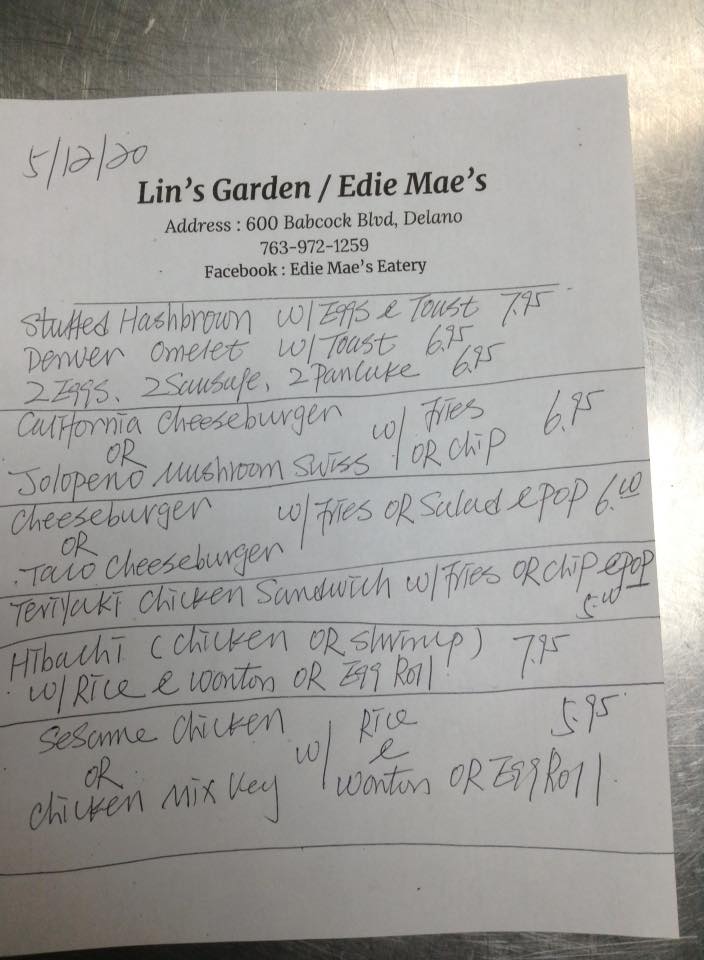 5/12/20
Lin's Garden / Edie Mae's
Address : 600 Babcock Blvd, Delano
763-972-1259
Facebook : Edie Mae's Eatery
Stuffed Hashbrown w/ Eggs & Toast 7.95
Denver Omelet w/ Toast 6.95
2 Eggs, 2 Sausage, 2 Pancake 6.95
California Cheeseburger w/ Fries 6.95
OR OR Chip
Jolopeno Mushroom Swiss
Cheeseburger w/ Fries OR Salad & pop 6.00
OR
Taco Cheeseburger
Teriyaki Chicken Sandwich w/ Fries OR Chip & pop
5.00
Hibachi (Chicken OR Shrimp) 7.95
w/ Rice & Wonton OR Egg Roll
Sesame Chicken w/ Rice 5.95
OR &
Chicken Mix Vey Wonton OR Egg Roll